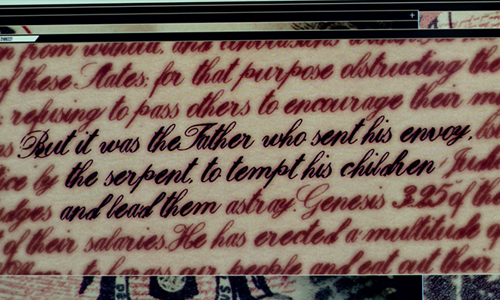 from without, and convulsions
of these States; for that purpose obstructing the
refusing to pass others to encourage their
But it was the Father who sent his envoy,
ice by the serpent, to tempt his children Jud
dges and lead them astray. Genesis 3:25 of the
of their salaries. He has erected a multitude o
to harass our people and eat out their